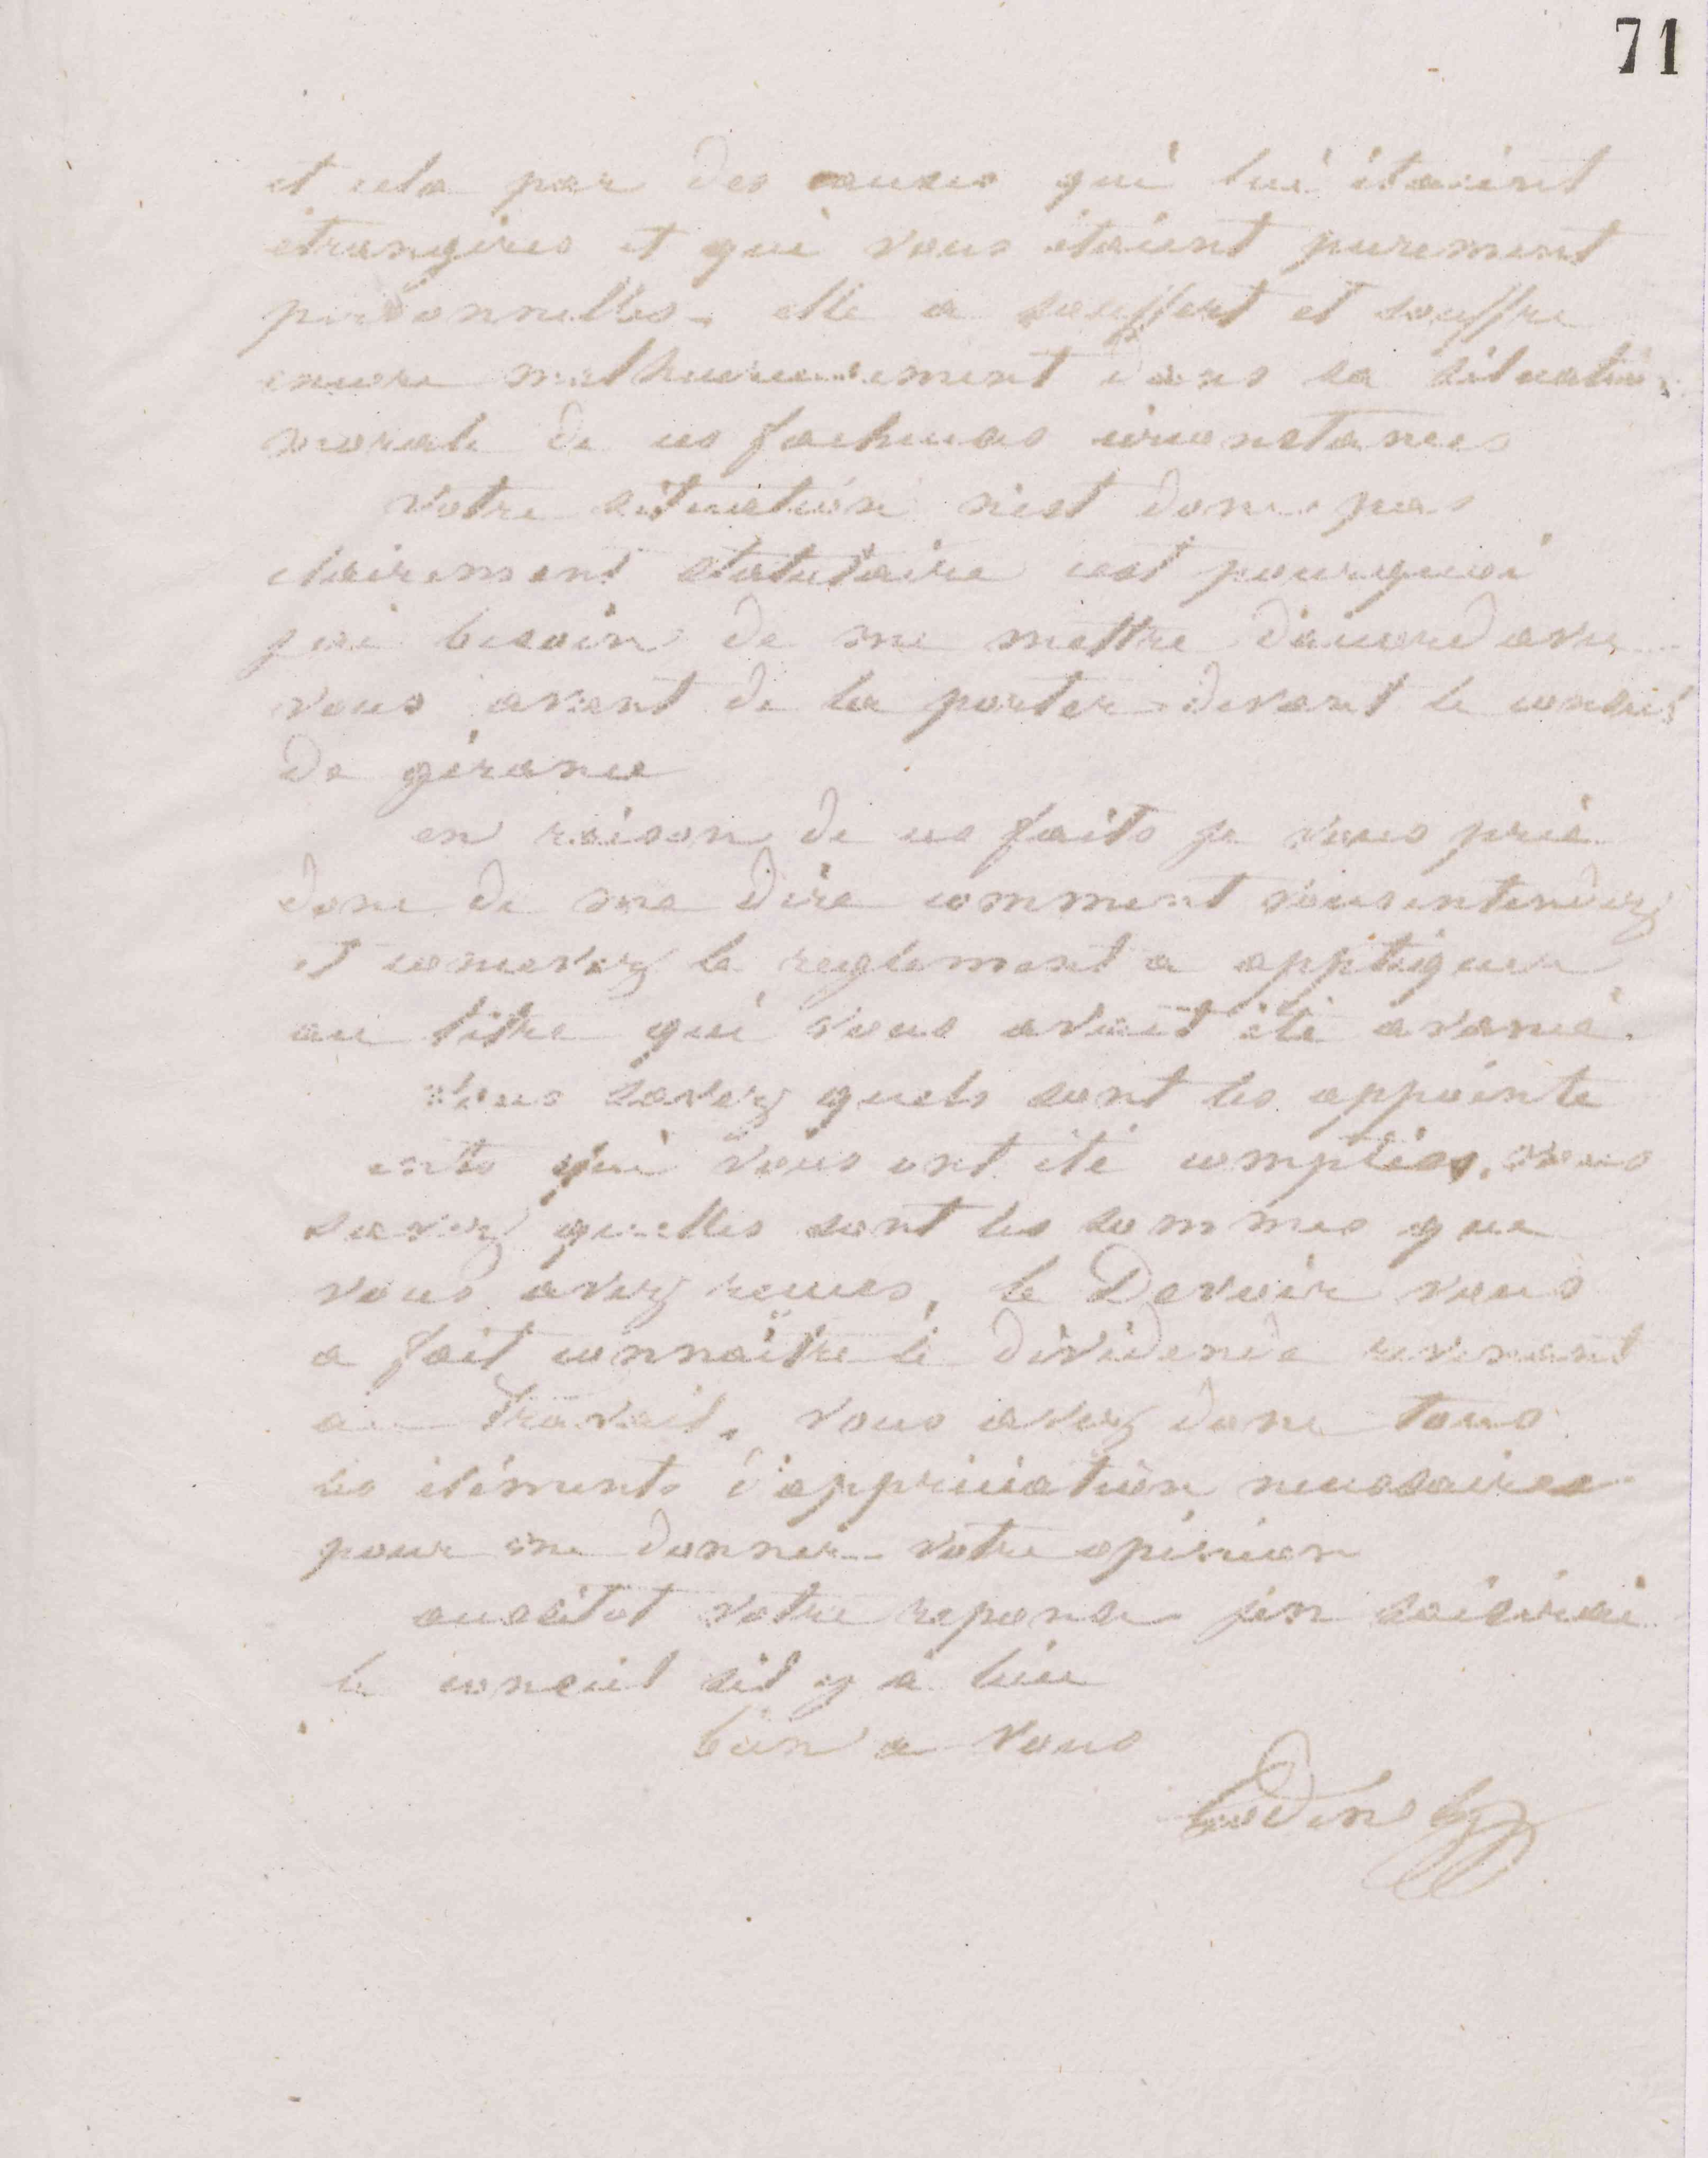 71
et cela par des causes qui lui étaient
étrangères et qui vous étaient purement
personnelles. elle a souffert et souffre
encore malheureusement dans sa situation
morale de ces facheuses circonstances
votre situation n'est donc pas
clairement statutaire cest pourquoi
jai besoin de me mettre d'accord avec
vous avant de la porter devant le conseil
de gérance
en raison de ces faits je vous prie
donc de me dire comment vous entendez
et concevez le reglement a appliquer
au titre qui vous avait été avancé.
vous savez quels sont les appointe
ents qui vous ont été comptés, vous
savez quelles sont les sommes que
vous avez reçues, le Devoir vous
a fait connaître le dividende revenant
au travail. vous avez donc tous
les éléments d'appréciation necessaires
pour me donner votre opinion
aussitot votre reponse j'en saisirai
le conseil sil y a lieu
bien a vous
Godin